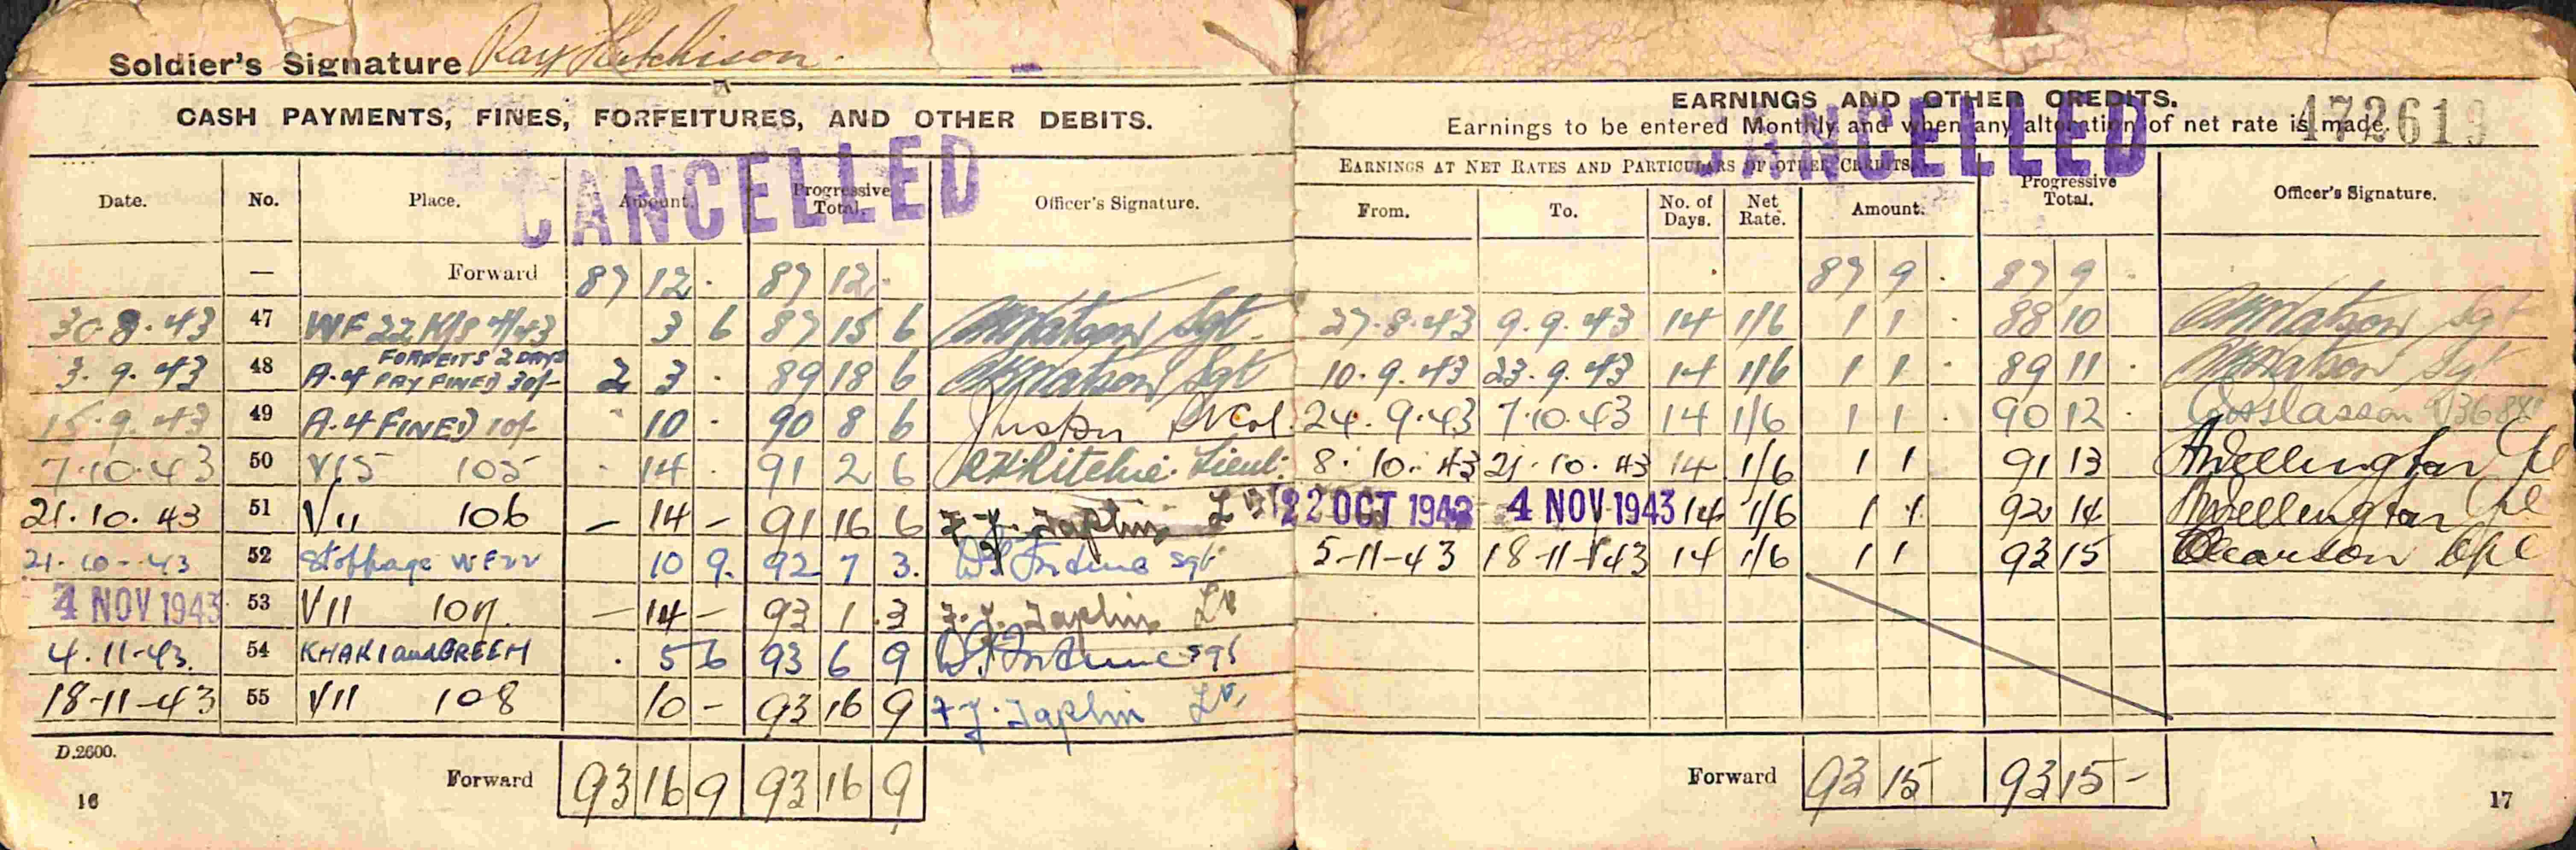 Soldier's Signature Ray Hutchison.
CASH PAYMENTS, FINES, FORFEITURES, AND OTHER DEBITS.
CANCELLED
Date. No. Place. Amount. Progressive Total. Officer's Signature.
— Forward 87 12 . 87 12 .
30 8 . 43 47 WF 22 4/43 3 6 87 15 6 Watson Sgt.
3 . 9 . 43 48 A.4 FORFEITS 2 DAYS PAY FINED 30/- 2 3 . 89 18 6 Watson Sgt
15 . 9 . 43 49 A.4 FINED 10/- . 10 . 90 8 6
7 . 10 . 43 50 V15 105 . 14 . 91 2 6 Ritchie Lieut:
21 . 10 . 43 51 V11 106 — 14 — 91 16 6 F. J. Taplin Lt
21 . 10 - . 43 52 Stoppage WF22 10 9. 92 7 3. Fortune Sgt
4 NOV 1943 53 V11 107. — 14 — 93 1 . 3 F. J. Taplin Lt
4 . 11 - 43. 54 KHAKI and GREEN . 5 6 93 6 9 Fortune Sgt
18-11-43 55 V11 108 10 - 93 16 9 F. J. Taplin Lt,
D.2600.
Forward 93 16 9 93 16 9
16
EARNINGS AND OTHER CREDITS.
472619
Earnings to be entered Monthly and when any alteration of net rate is made.
CANCELLED
EARNINGS AT NET RATES AND PARTICULARS OF OTHER CREDITS.
From. To. No. of Days. Net Rate. Amount. Progressive Total. Officer's Signature.
87 9 . 87 9 .
27 . 8 . 43 9 . 9 . 43 14 1/6 1 1 . 88 10 Watson Sgt
10 . 9 . 43 23 . 9 . 43 14 1/6 1 1 . 89 11 . Watson Sgt
24 . 9 . 43 7 . 10 . 43 14 1/6 1 1 . 90 12 .
8 . 10 . 43 21 . 10 . 43 14 1/6 1 1 91 13 Wellington Cpl
22 OCT 1943 4 NOV 1943 14 1/6 1 1 92 14 Wellington Cpl
5-11-43 18-11-43 14 1/6 1 1 93 15 Pearson Cpl
Forward 93 15 93 15 -
17